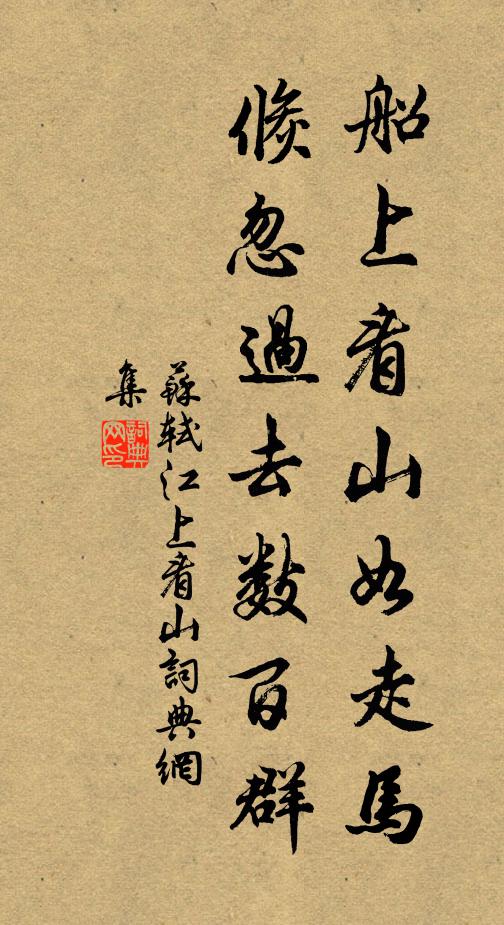 船上看山如走馬
倏忽過去數百群
蘇軾江上看山詞典網
集
詞典
网印